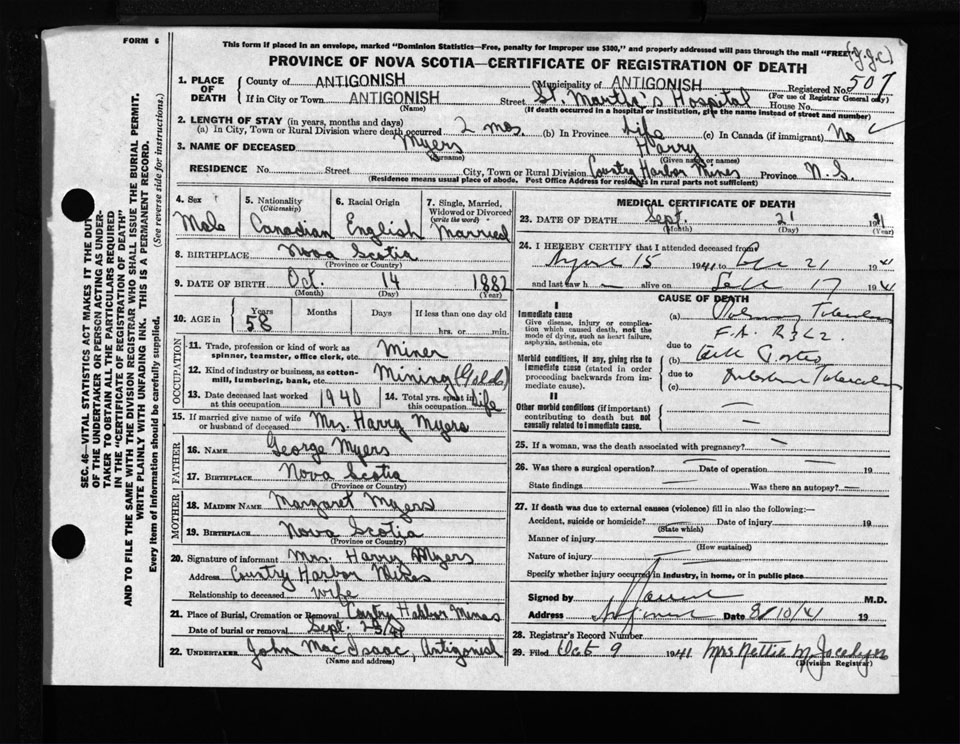 FORM 6
This form if placed in an envelope, marked "Dominion Statistics—Free, penalty for improper use $300," and properly addressed will pass through the mail "FREE"
PROVINCE OF NOVA SCOTIA—CERTIFICATE OF REGISTRATION OF DEATH
1. PLACE OF DEATH County of ANTIGONISH Municipality of ANTIGONISH Registered No. 507
(For use of Registrar General only)
If in City or Town ANTIGONISH Street St. Martha's Hospital House No.
(Name) (If death occurred in a hospital or institution, give the name instead of street and number)
2. LENGTH OF STAY (in years, months and days)
(a) In City, Town or Rural Division where death occurred 2 mos (b) In Province Life (c) In Canada (if immigrant) No
3. NAME OF DECEASED Myers Harry
(Surname) (Given name or names)
RESIDENCE No. Street City, Town or Rural Division Country Harbor Mines Province N.S.
(Residence means usual place of abode. Post Office Address for residents in rural parts not sufficient)
4. Sex 5. Nationality (Citizenship) 6. Racial Origin 7. Single, Married, Widowed or Divorced (write the word)
Male Canadian English Married
8. BIRTHPLACE Nova Scotia
(Province or Country)
9. DATE OF BIRTH Oct. 14 1882
(Month) (Day) (Year)
10. AGE in Years Months Days If less than one day old
58 hrs. or min.
OCCUPATION
11. Trade, profession or kind of work as spinner, teamster, office clerk, etc. Miner
12. Kind of industry or business, as cotton-mill, lumbering, bank, etc. Mining (Gold)
13. Date deceased last worked at this occupation 1940 14. Total yrs. spent in this occupation Life
15. If married give name of wife or husband of deceased Mrs. Harry Myers
FATHER
16. NAME George Myers
17. BIRTHPLACE Nova Scotia
(Province or Country)
MOTHER
18. MAIDEN NAME Margaret Myers
19. BIRTHPLACE Nova Scotia
(Province or Country)
20. Signature of informant Mrs. Harry Myers
Address Country Harbor Mines
Relationship to deceased Wife
21. Place of Burial, Cremation or Removal Country Harbor Mines
Date of burial or removal Sept. 23/41
22. UNDERTAKER John MacIsaac, Antigonish
(Name and address)
MEDICAL CERTIFICATE OF DEATH
23. DATE OF DEATH Sept. 21 1941
(Month) (Day) (Year)
24. I HEREBY CERTIFY that I attended deceased from
15 1941 to 21 1941
and last saw h alive on Sept 17 1941
CAUSE OF DEATH
I
Immediate cause
Give disease, injury or complication which caused death, not the mode of dying, such as heart failure, asphyxia, asthenia, etc
(a)
due to
Morbid conditions, if any, giving rise to immediate cause (stated in order proceeding backwards from immediate cause).
(b)
due to
(c)
II
Other morbid conditions (if important) contributing to death but not causally related to immediate cause.
25. If a woman, was the death associated with pregnancy?
26. Was there a surgical operation? Date of operation 19
State findings Was there an autopsy?
27. If death was due to external causes (violence) fill in also the following:—
Accident, suicide or homicide? Date of injury 19
(State which)
Manner of injury
(How sustained)
Nature of injury
Specify whether injury occurred in industry, in home, or in public place
Signed by M.D.
Address Date 8/10/41 19
28. Registrar's Record Number
29. Filed Oct 9 1941 Mrs Nettie M.
(Division Registrar)
SEC. 46—VITAL STATISTICS ACT MAKES IT THE DUTY
OF THE UNDERTAKER OR PERSON ACTING AS UNDER-
TAKER TO OBTAIN ALL THE PARTICULARS REQUIRED
IN THE "CERTIFICATE OF REGISTRATION OF DEATH"
AND TO FILE THE SAME WITH THE DIVISION REGISTRAR WHO SHALL ISSUE THE BURIAL PERMIT.
WRITE PLAINLY WITH UNFADING INK. THIS IS A PERMANENT RECORD.
Every item of information should be carefully supplied. (See reverse side for instructions.)